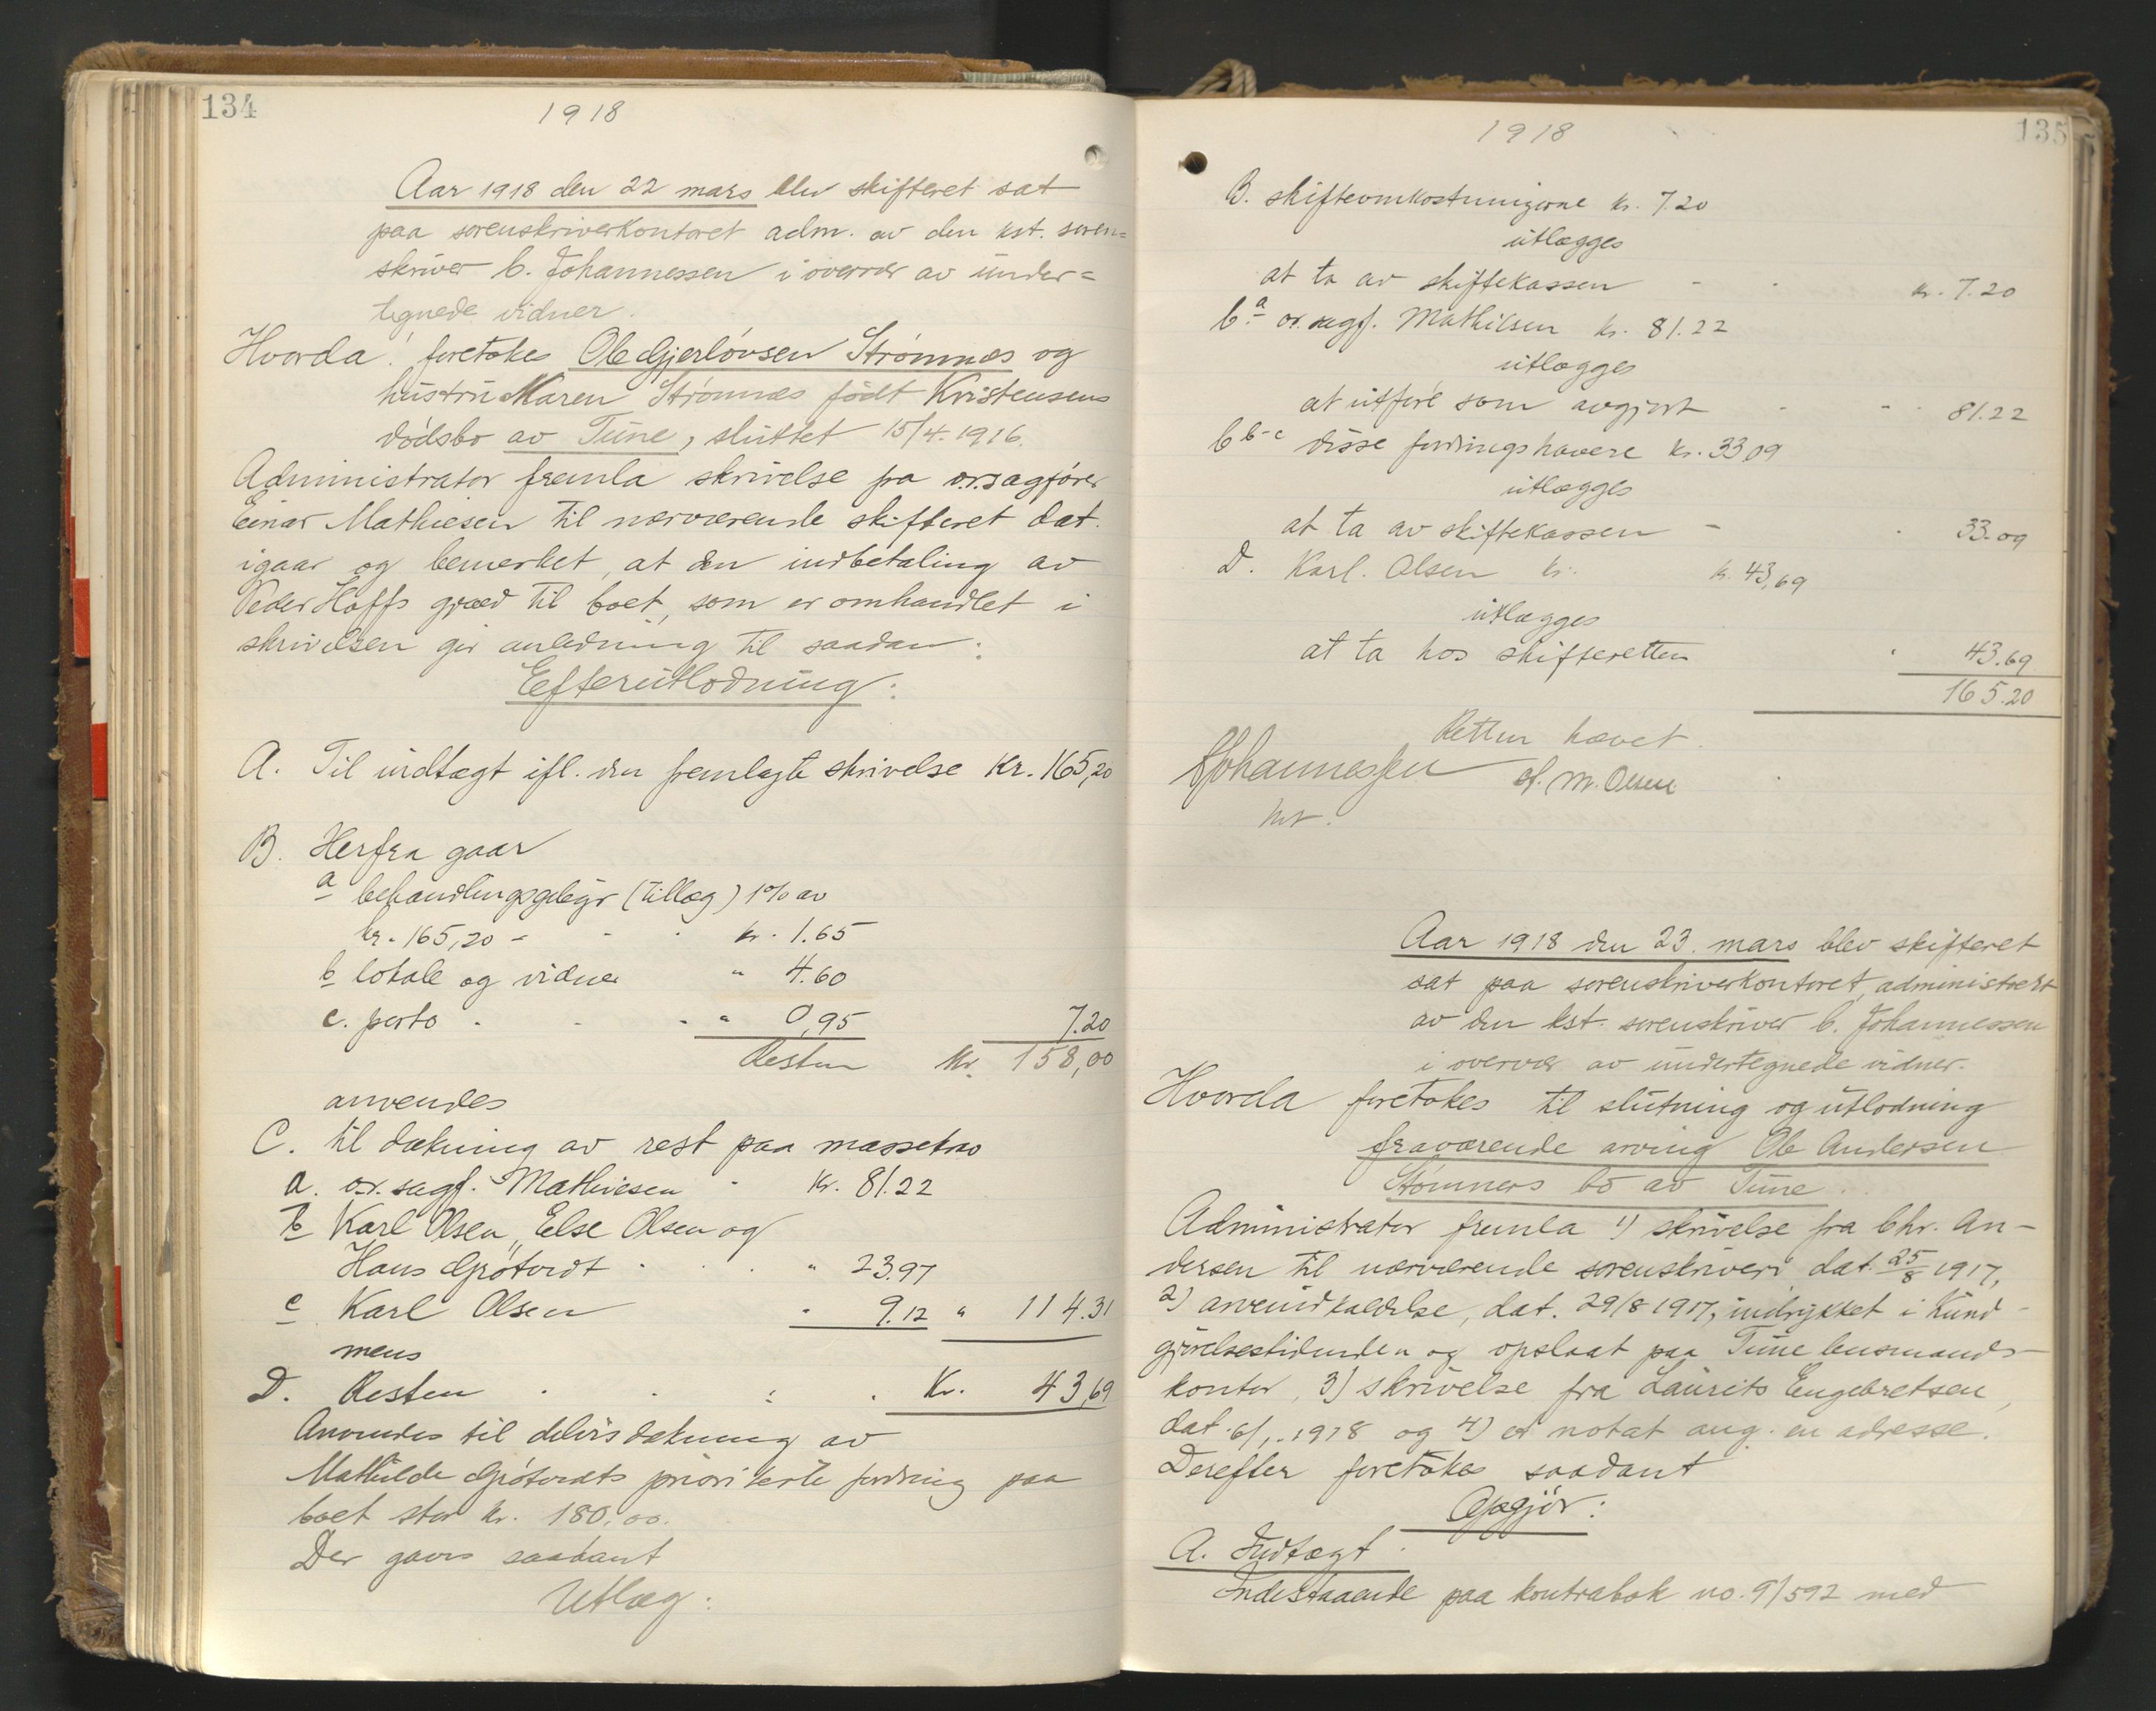 134
1918
Aar 1918 den 22 mars blev skifteret sat
paa sorenskriverkontoret adm. av den kst. soren=
skriver C. Johannessen i overvær av under=
tegnede vidner.
Hvorda: foretokes Ole Gjerløvsen Strømnæs og
hustru Maren Strømnæs født Kristensens
dødsbo av Tune, sluttet 15/4. 1916.
Administrator fremla skrivelse fra o.r.sagfører
Einar Mathiesen til nærværende skifteret dat.
igaar og bemerket, at den indbetaling av
Peder Hoffs gjæld til boet, som er omhandlet i
skrivelsen gir anledning til saadan:
Efterutlodning:
A. Til indtægt ifl. den fremlagte skrivelse Kr. 165,20
B. Herfra gaar
a behandlingsgebyr (tillæg) 1% av
kr. 165,20 - - - kr. 1.65
b lokale og vidner " 4.60
c. porto - - - " 0,95 7.20
Resten Kr. 158,00
anvendes
C. til dækning av rest paa massekrav
a. o.r. sagf. Mathiesen - Kr. 81.22
b Karl Olsen, Else Olsen og
Hans Grøtvedt - - - " 23.97
c Karl Olsen - 9.12 " 114.31
mens
D. Resten - - - - Kr. 43,69
Anvendes til delvis dækning av
Mathilde Grøtvedts prioriterte fordring paa
boet stor kr. 180.00.
Der gaves saadant
Utlæg:
1918
135
B. skifteomkostningerne kr. 7.20
utlægges
at ta av skiftekassen - - kr. 7.20
C.a o.r. sagf. Mathisen kr. 81.22
utlægges
at utføre som avgjort - - - 81.22
C b-c disse fordringshavere kr. 33,09
utlægges
at ta av skiftekassen - - 33.09
D. Karl. Olsen kr. kr. 43,69
utlægges
at ta hos skifteretten - 43.69
165.20
Retten hævet.
CJohannessen M. Olsen
kst.
Aar 1918 den 23. mars blev skifteret
sat paa sorenskriverkontoret, administrert
av den kst. sorenskriver C. Johannessen
i overvær av undertegnede vidner.
Hvorda foretokes til slutning og utlodning
fraværende arving Ole Andersen
Strømners bo av Tune.
Administrator fremla 1) skrivelse fra Chr. An-
dersen til nærværende sorenskriveri dat. 25/8 1917,
2) arveindkaldelse, dat. 29/8 1917, indrykket i Kund-
gjørelsestidenden og opslaat paa Tune lensmands-
kontor, 3) skrivelse fra Laurits Engebretsen,
dat. 6/1. 1918 og 4) et notat ang. en adresse.
Derefter foretokes saadant
Opgjør:
A. Indtægt.
Indestaaende paa kontrabok no. 9/592 med